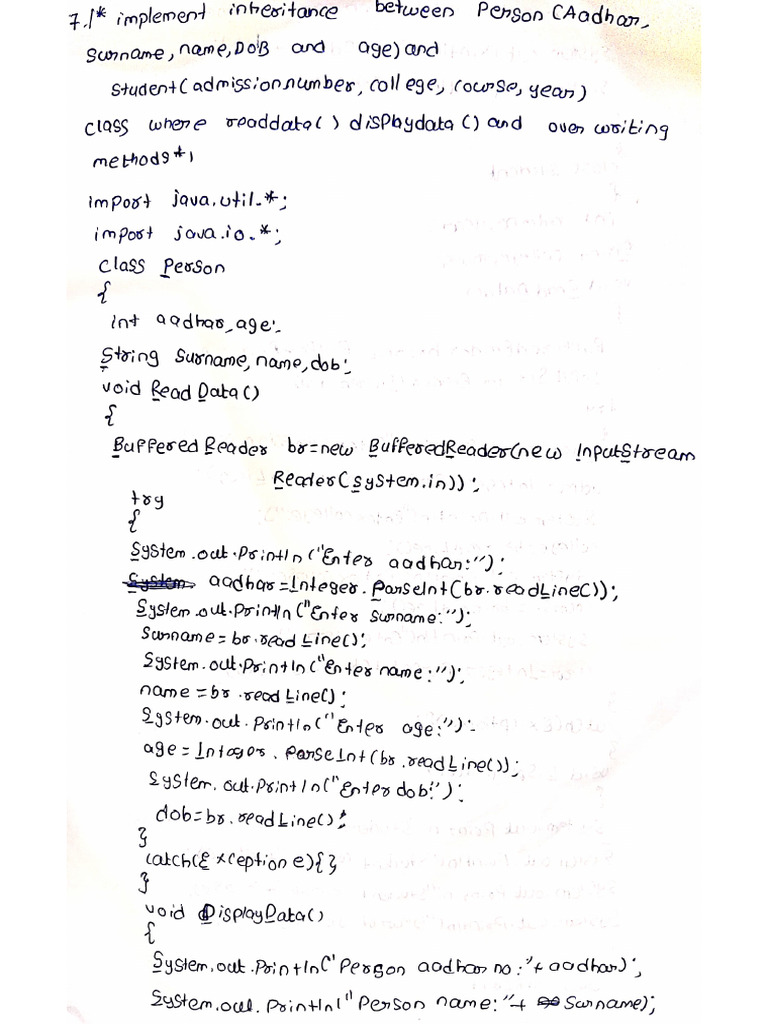 7. /* implement inheritance between Person (Aadhar,
Surname, name, DOB and age) and
Student (admission number, college, course, year)
class where readdata() displaydata() and over writing
methods */
import java.util.*;
import java.io.*;
class Person
{
int aadhar, age;
String Surname, name, dob;
void ReadData()
{
BufferedReader br=new BufferedReader(new InputStream
Reader(System.in));
try
{
System.out.Println("Enter aadhar:");
aadhar=Integer.ParseInt(br.readLine());
System.out.Println("Enter Surname:");
Surname=br.readLine();
System.out.Println("Enter name:");
name=br.readLine();
System.out.Println("Enter age:");
age=Integer.ParseInt(br.readLine());
System.out.Println("Enter dob:");
dob=br.readLine();
}
catch(Exception e){}
}
void DisplayData()
{
System.out.Println("Person aadhar no:"+aadhar);
System.out.Println("Person name:"+Surname);